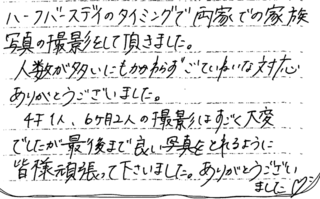 ハーフバースデイのタイミングで両家での家族
写真の撮影をして頂きました。
人数が多いにもかかわらずごていねいな対応
ありがとうございました。
4才1人、6ヶ月2人の撮影はすごく大変
でしたが最後まで良い写真をとれるように
皆様頑張って下さいました。ありがとうござい
ました♡